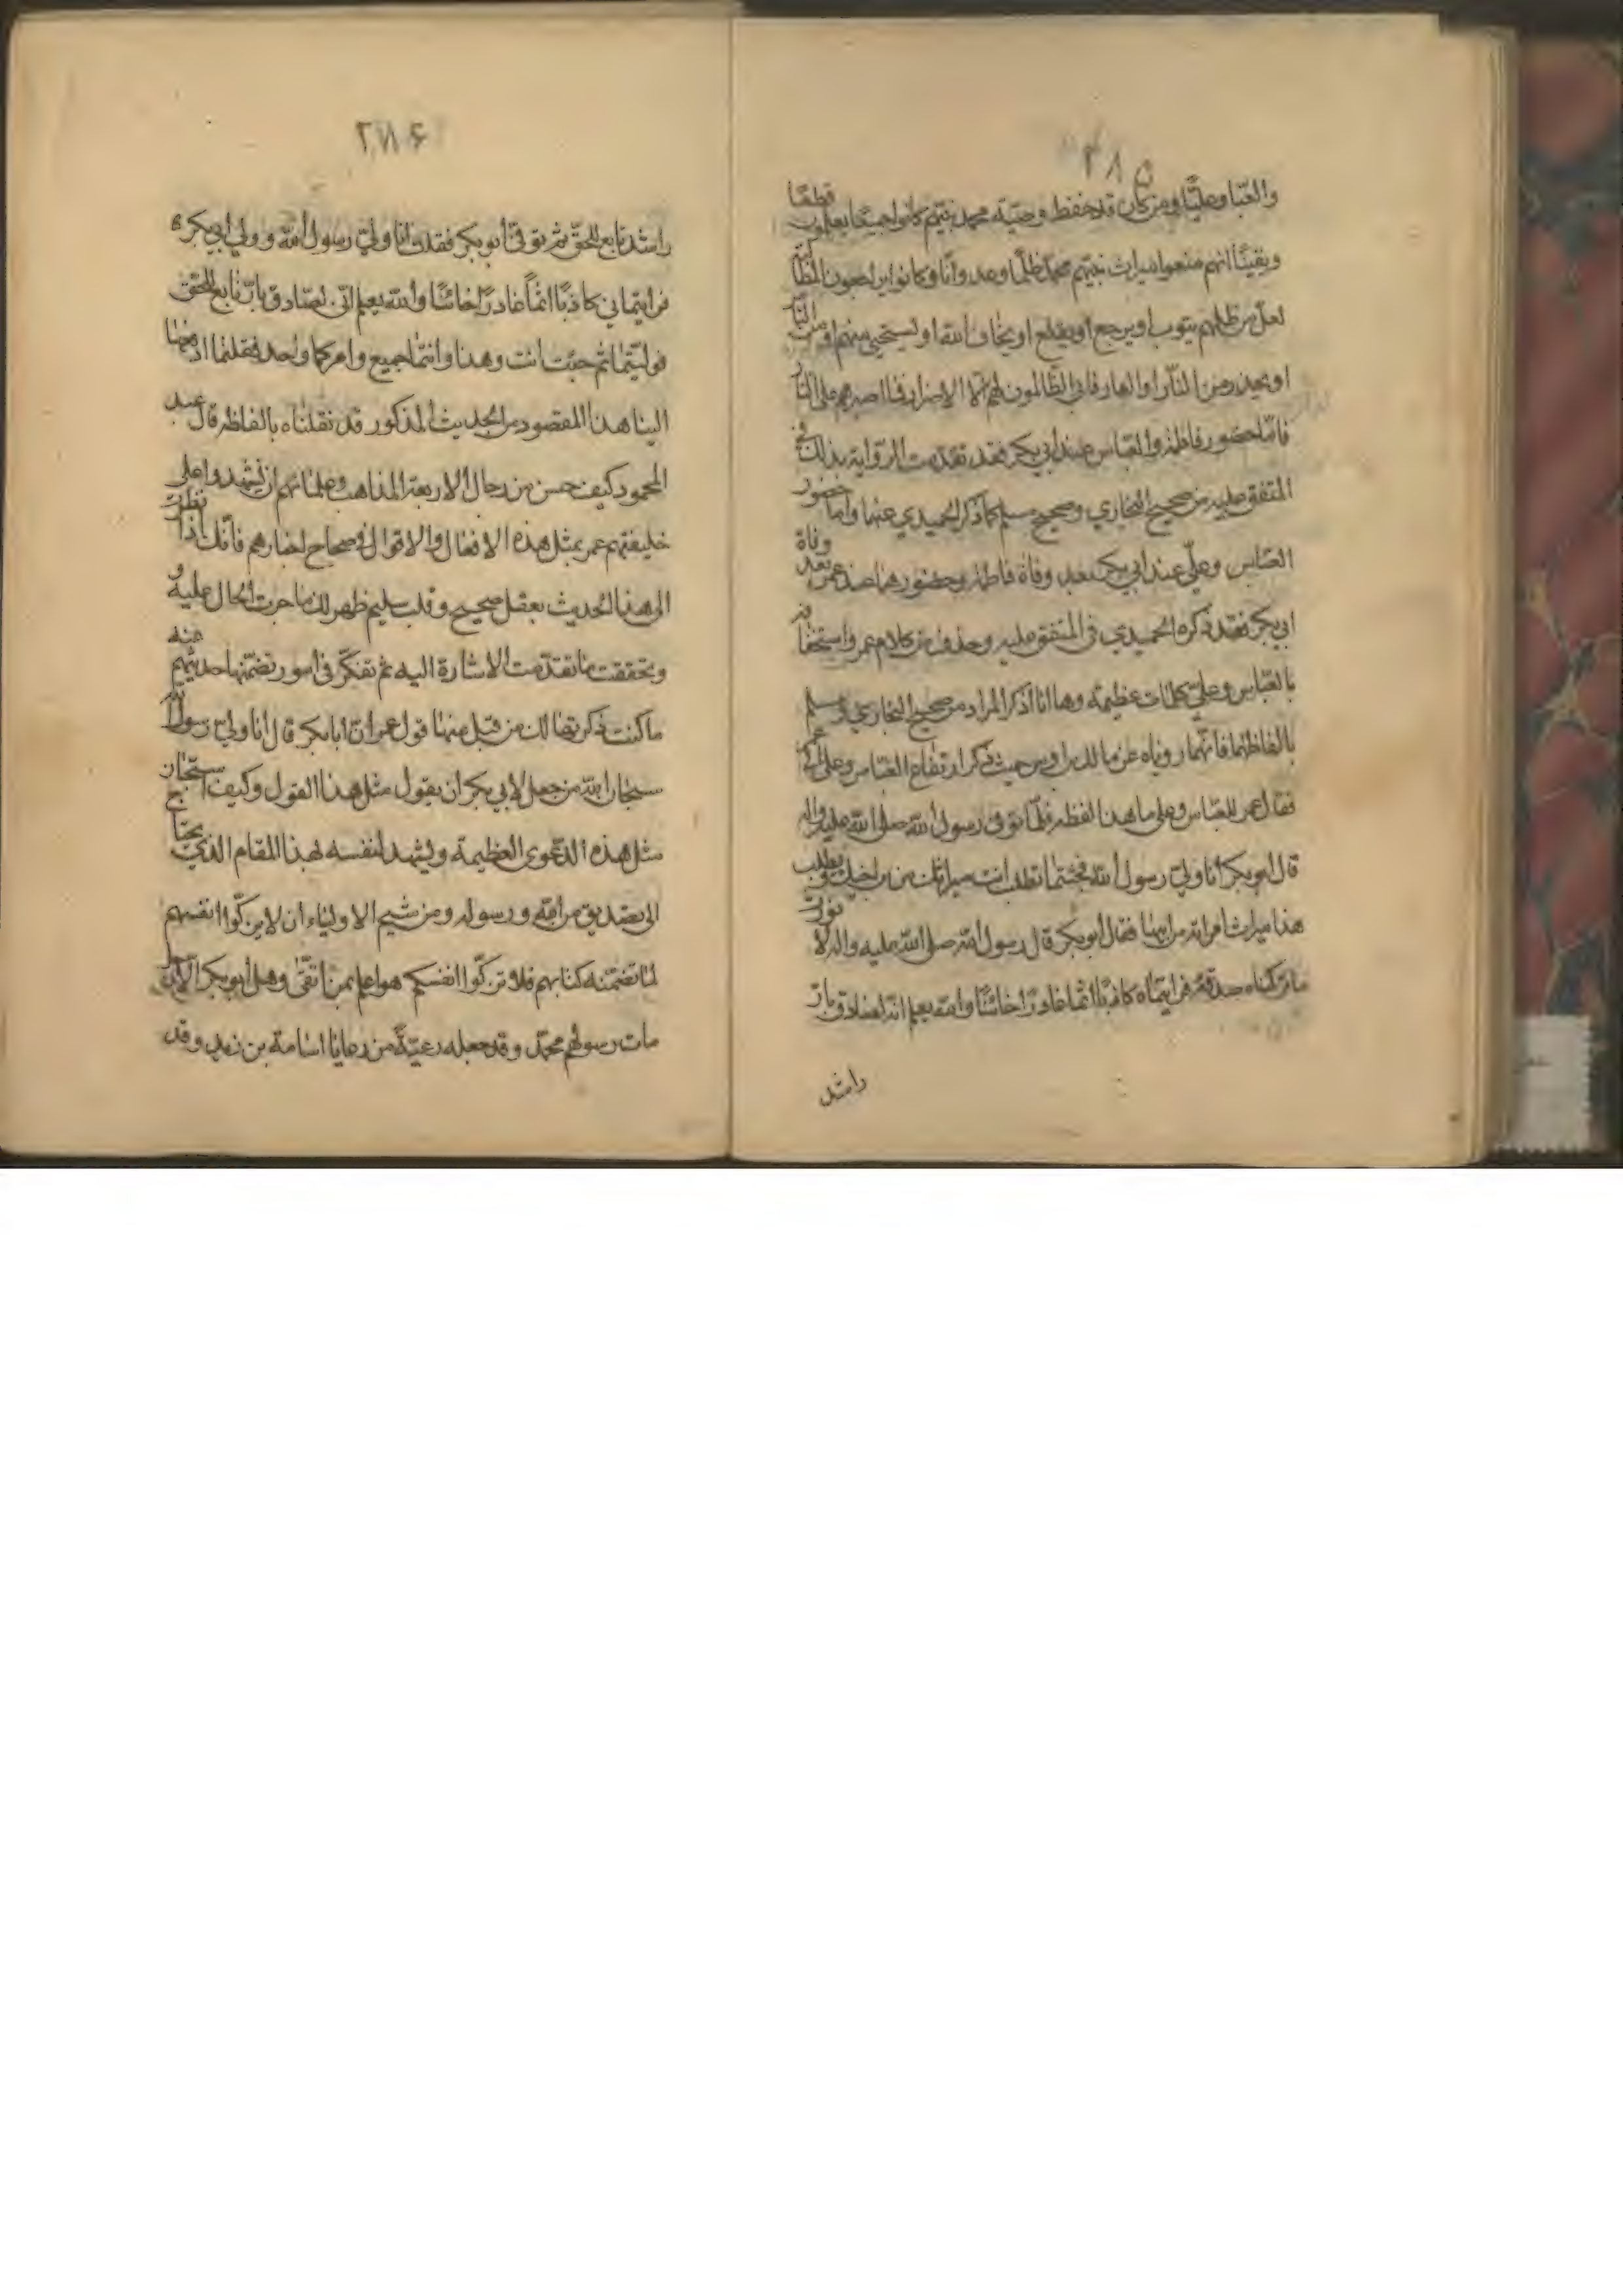 ٢٨٥
والعباس وعليّا ومن كان قد حفظ وصيّة محمد نبيّهم كانوا جميعا يعلمون قطعًا
ويقينًا انهم منعوا ميراث نبيّهم محمّد ظلمًا وعدوانًا وكانوا يراجعون
لعلّ من ظلمهم يتوب او يرجع او يقلع او يخاف الله او يستحيي منهم او من
او يحذر من النّار او العار فابى الظّالمون لهم الّا الاصرار فما اصبرهم على النّار
فامّا حضور فاطمة والعباس عند ابي بكر فقد تقدمت الرّواية بذلك في
المتفق عليه من صحيح البخاري وصحيح مسلم كما ذكر الحميدي عنهما واما حضور
العبّاس وعليّ عند ابي بكر بعد وفاة فاطمة وحضورهما عند عمر بعد وفاة
ابي بكر فقد ذكره الحميدي في المتفق عليه وحذف من كلام عمر واستخفافه
بالعبّاس وعليّ كلمات عظيمة وها انا اذكر المراد من صحيح البخاري ومسلم
بالفاظهما فانّهما روياه عن مالك بن اوس حيث ذكر ارتفاع العبّاس وعلي الى عمر
فقال عمر للعبّاس وعلي ما هذا لفظه فلمّا توفى رسول الله صلى الله عليه واله
قال ابو بكر انا وليّ رسول الله فجئتما تطلب انت ميراثك من ابن اخيك ويطلب
هذا ميراث امراته من ابيها فقال ابو بكر قال رسول الله صلى الله عليه واله لا نورث
ما تركناه صدقة فرايتماه كاذبًا اثمًا غادرًا خائنًا والله يعلم انه لصادق بارّ
راشد
٢٨٦
راشد تابع للحقّ ثم توفى ابو بكر فقلت انا وليّ رسول الله وولي ابي بكر
فرايتماني كاذبًا اثمًا غادرًا خائنًا والله يعلم انّي لصادق بارّ تابع للحقّ
فوليتها ثم جئت انت وهذا وانتما جميع وامركما واحد فقلتما ادفعها
الينا هذا المقصود من الحديث المذكور قد نقلناه بالفاظه قال عبد
المحمود كيف حسن من رجال الاربعة المذاهب وعلمائهم ان يشهدوا على
خليفتهم عمر بمثل هذه الافعال والاقوال في صحاح اخبارهم فانّك اذا نظرت
الى هذا الحديث بعقل صحيح وقلب سليم ظهر لك ما جرت الحال عليه و
وتحققت ما تقدّمت الاشارة اليه ثم تفكّر في امور تضمّنها حديثهم عنه
ما كنت ذكرتها لك من قبل منها قول عمر ان ابا بكر قال انا وليّ رسول الله
سبحان الله من جعل لابي بكر ان يقول مثل هذا القول وكيف استجاز
مثل هذه الدّعوى العظيمة ويشهد لنفسه لهذا المقام الذي يحتاج
الى تصديق من الله ورسوله ومن شيم الاولياء ان لا يزكّوا انفسهم
لما تضمّنه كتابهم فلا تزكّوا انفسكم هو اعلم بمن اتّقى وهل ابو بكر الّا رجل
مات رسولهم محمّد وقد جعله رعيّة من رعايا اسامة بن زيد وقد